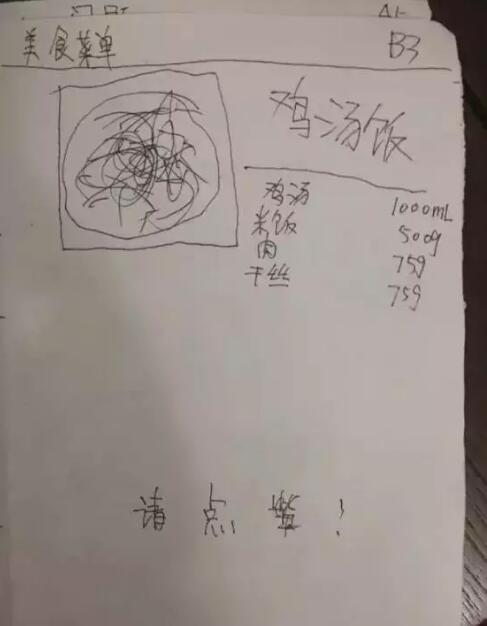 美食菜单 B3
鸡汤饭
鸡汤 1000mL
米饭 500g
肉 75g
干丝 75g
请点赞！